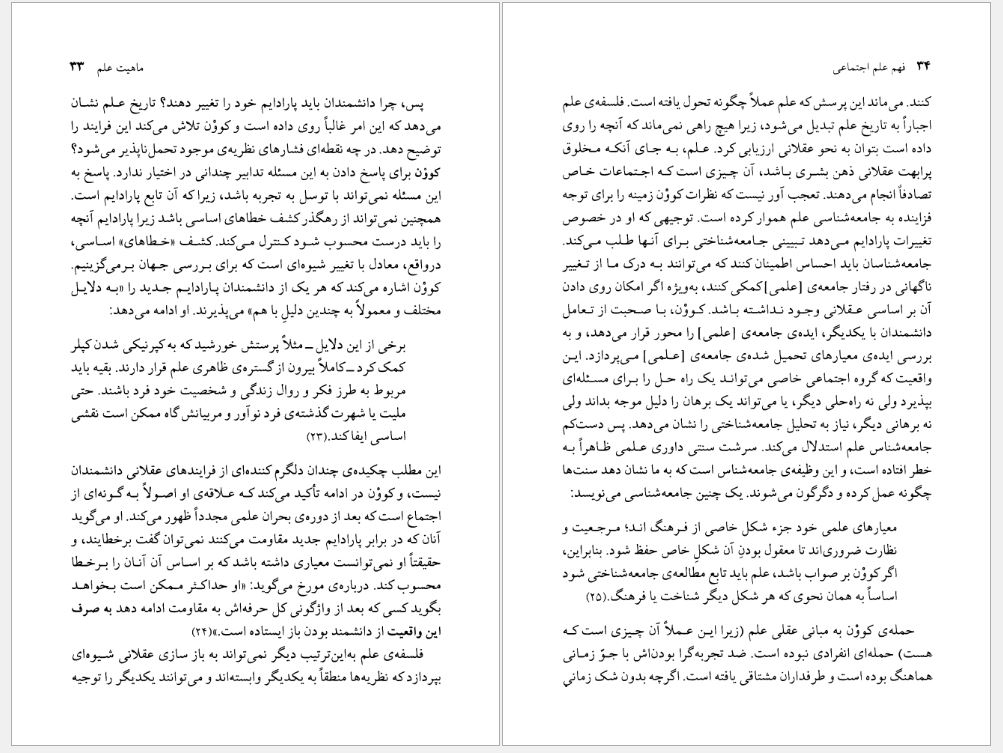 ماهیت علم ۳۳
پس، چرا دانشمندان باید پارادایم خود را تغییر دهند؟ تاریخ علم نشان
می‌دهد که این امر غالباً روی داده است و کووْن تلاش می‌کند این فرایند را
توضیح دهد. در چه نقطه‌ای فشارهای نظریه‌ی موجود تحمل‌ناپذیر می‌شود؟
کووْن برای پاسخ دادن به این مسئله تدابیر چندانی در اختیار ندارد. پاسخ به
این مسئله نمی‌تواند با توسل به تجربه باشد، زیرا که آن تابع پارادایم است.
همچنین نمی‌تواند از رهگذر کشف خطاهای اساسی باشد زیرا پارادایم آنچه
را باید درست محسوب شود کنترل می‌کند. کشف «خطاهای» اساسی،
درواقع، معادل با تغییر شیوه‌ای است که برای بررسی جهان برمی‌گزینیم.
کووْن اشاره می‌کند که هر یک از دانشمندان پارادایم جدید را «به دلایل
مختلف و معمولاً به چندین دلیلِ با هم» می‌پذیرند. او ادامه می‌دهد:
برخی از این دلایل ــ مثلاً پرستش خورشید که به کپرنیکی شدن کپلر
کمک کرد ــ کاملاً بیرون از گستره‌ی ظاهری علم قرار دارند. بقیه باید
مربوط به طرز فکر و روال زندگی و شخصیت خود فرد باشند. حتی
ملیت یا شهرت گذشته‌ی فرد نوآور و مربیانش گاه ممکن است نقشی
اساسی ایفا کند.(۲۳)
این مطلب چکیده‌ی چندان دلگرم کننده‌ای از فرایندهای عقلانی دانشمندان
نیست، و کووْن در ادامه تأکید می‌کند که علاقه‌ی او اصولاً به گونه‌ای از
اجتماع است که بعد از دوره‌ی بحران علمی مجدداً ظهور می‌کند. او می‌گوید
آنان که در برابر پارادایم جدید مقاومت می‌کنند نمی‌توان گفت برخطایند، و
حقیقتاً او نمی‌توانست معیاری داشته باشد که بر اساس آن آنان را برخطا
محسوب کند. درباره‌ی مورخ می‌گوید: «او حداکثر ممکن است بخواهد
بگوید کسی که بعد از واژگونی کل حرفه‌اش به مقاومت ادامه دهد به صرف
این واقعیت از دانشمند بودن باز ایستاده است.»(۲۴)
فلسفه‌ی علم به‌این‌ترتیب دیگر نمی‌تواند به باز سازی عقلانی شیوه‌ای
بپردازد که نظریه‌ها منطقاً به یکدیگر وابسته‌اند و می‌توانند یکدیگر را توجیه
۳۴ فهم علم اجتماعی
کنند. می‌ماند این پرسش که علم عملاً چگونه تحول یافته است. فلسفه‌ی علم
اجباراً به تاریخ علم تبدیل می‌شود، زیرا هیچ راهی نمی‌ماند که آنچه را روی
داده است بتوان به نحو عقلانی ارزیابی کرد. علم، به جای آنکه مخلوق
پرابهت عقلانی ذهن بشری باشد، آن چیزی است که اجتماعات خاص
تصادفاً انجام می‌دهند. تعجب آور نیست که نظرات کووْن زمینه را برای توجه
فزاینده به جامعه‌شناسی علم هموار کرده است. توجیهی که او در خصوص
تغییرات پارادایم می‌دهد تبیینی جامعه‌شناختی برای آنها طلب می‌کند.
جامعه‌شناسان باید احساس اطمینان کنند که می‌توانند به درک ما از تغییر
ناگهانی در رفتار جامعه‌ی [علمی] کمکی کنند، به‌ویژه اگر امکان روی دادن
آن بر اساسی عقلانی وجود نداشته باشد. کووْن، با صحبت از تعامل
دانشمندان با یکدیگر، ایده‌ی جامعه‌ی [علمی] را محور قرار می‌دهد، و به
بررسی ایده‌ی معیارهای تحمیل شده‌ی جامعه‌ی [علمی] می‌پردازد. این
واقعیت که گروه اجتماعی خاصی می‌تواند یک راه حل را برای مسئله‌ای
بپذیرد ولی نه راه‌حلی دیگر، یا می‌تواند یک برهان را دلیل موجه بداند ولی
نه برهانی دیگر، نیاز به تحلیل جامعه‌شناختی را نشان می‌دهد. پس دست‌کم
جامعه‌شناس علم استدلال می‌کند. سرشت سنتی داوری علمی ظاهراً به
خطر افتاده است، و این وظیفه‌ی جامعه‌شناس است که به ما نشان دهد سنت‌ها
چگونه عمل کرده و دگرگون می‌شوند. یک چنین جامعه‌شناسی می‌نویسد:
معیارهای علمی خود جزء شکل خاصی از فرهنگ اند؛ مرجعیت و
نظارت ضروری‌اند تا معقول بودنِ آن شکلِ خاص حفظ شود. بنابراین،
اگر کووْن بر صواب باشد، علم باید تابع مطالعه‌ی جامعه‌شناختی شود
اساساً به همان نحوی که هر شکل دیگر شناخت یا فرهنگ.(۲۵)
حمله‌ی کووْن به مبانی عقلی علم (زیرا این عملاً آن چیزی است که
هست) حمله‌ای انفرادی نبوده است. ضد تجربه‌گرا بودن‌اش با جوّ زمانی
هماهنگ بوده است و طرفداران مشتاقی یافته است. اگرچه بدون شک زمانی